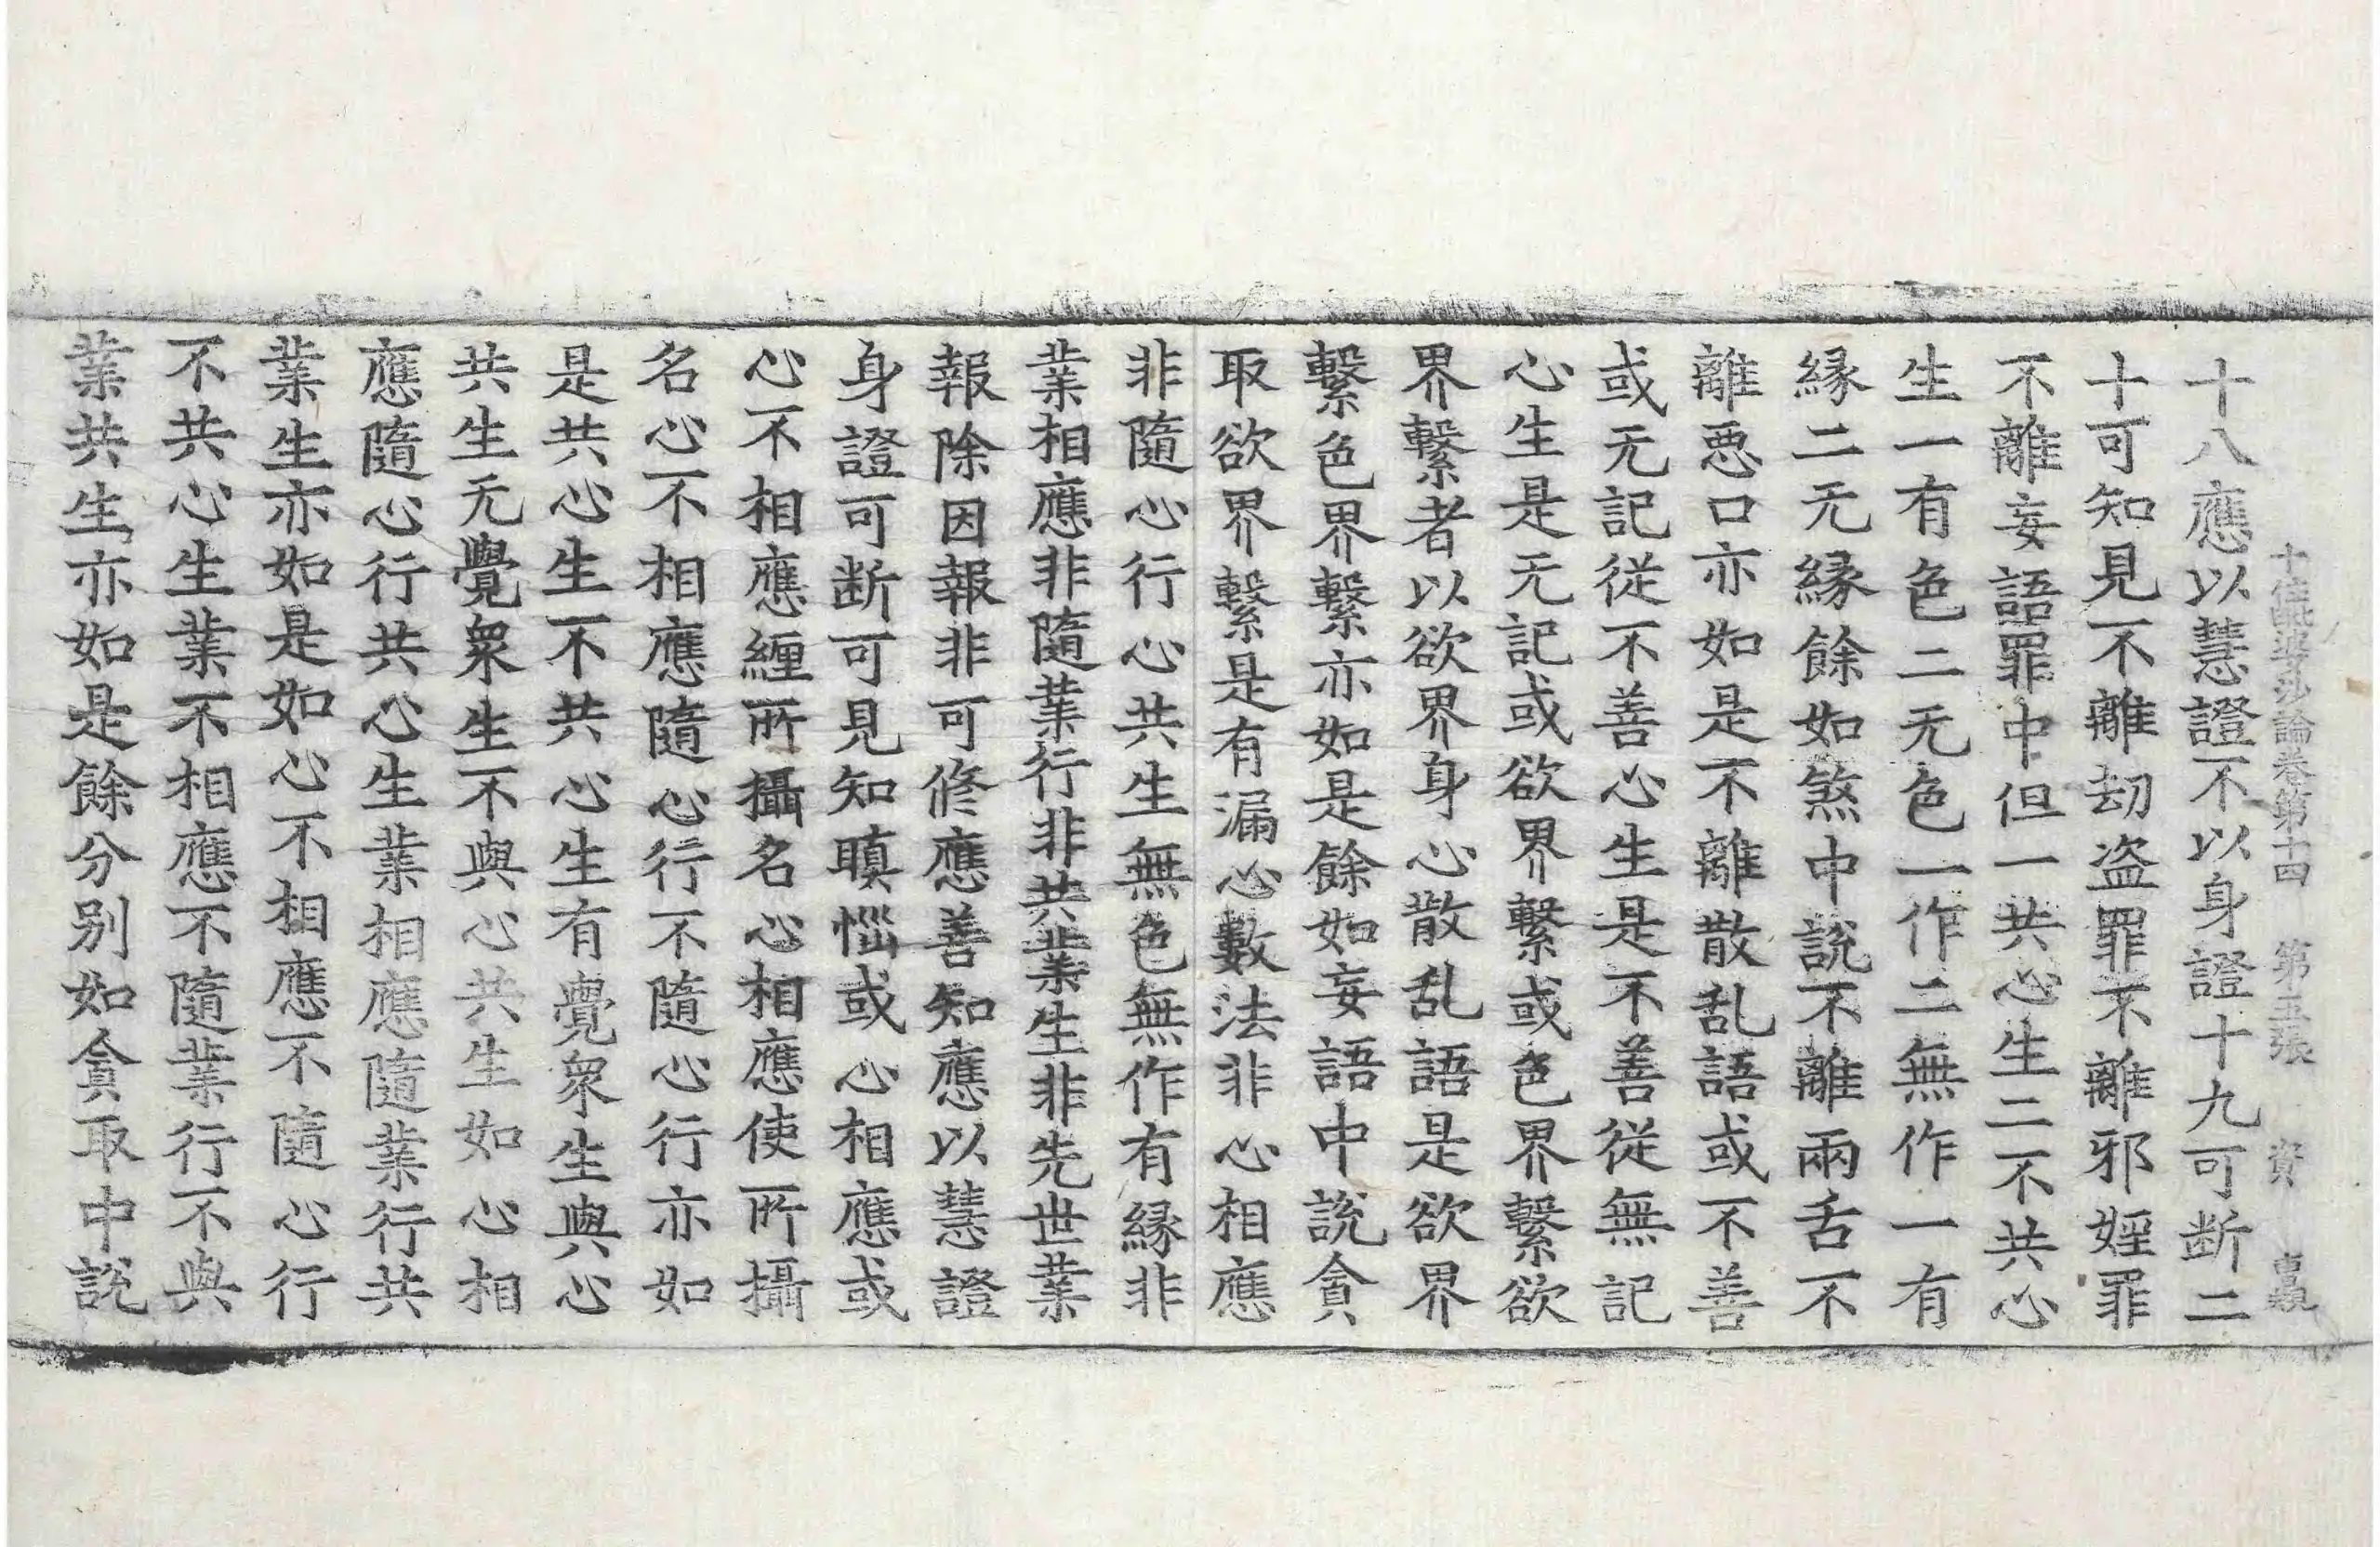 十住毗婆沙論卷第十四　第五張　資
十八應以慧證不以身證十九可断二
十可知見不離劫盗罪不離邪婬罪
不離妄語罪中但一共心生二不共心
生一有色二无色一作二無作一有
縁二无縁餘如煞中說不離兩舌不
離惡口亦如是不離散乱語或不善
或无記從不善心生是不善從無記
心生是无記或欲界繫或色界繫欲
界繫者以欲界身心散乱語是欲界
繫色界繫亦如是餘如妄語中說貪
取欲界繫是有漏心數法非心相應
非隨心行心共生無色無作有縁非
業相應非隨業行非共業生非先世業
報除因報非可修應善知應以慧證
身證可断可見知瞋惱或心相應或
心不相應纏所攝名心相應使所攝
名心不相應隨心行不隨心行亦如
是共心生不共心生有覺衆生與心
共生无覺衆生不與心共生如心相
應隨心行共心生業相應隨業行共
業生亦如是如心不相應不隨心行
不共心生業不相應不隨業行不與
業共生亦如是餘分别如貪取中說